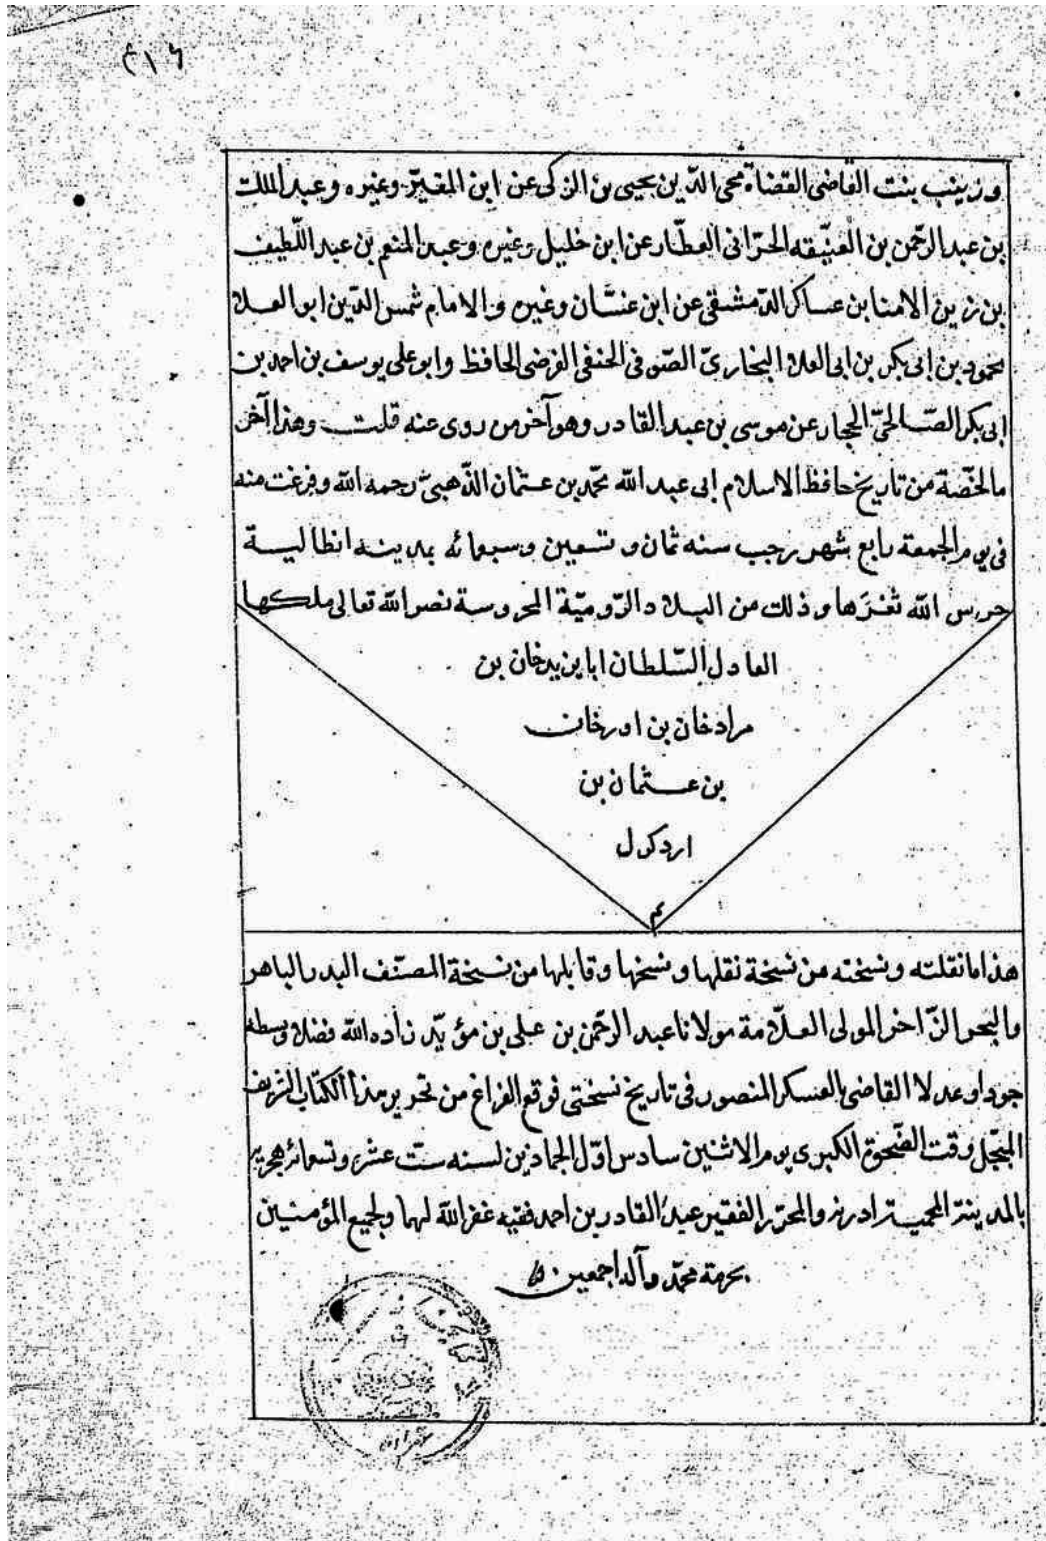 ٤١٦
وزينب بنت القاضى القضاة محى الدّين يحيى بن الزكى عن ابن المقيّر وغيره وعبد الملك
بن عبد الرحمن بن الفنيّقه الحرّانى العطّار عن ابن خليل وغيره وعبد المنعم بن عبد اللّطيف
بن زين الامنا بن عساكر الدّمشقى عن ابن غسّان وغيره والامام شمس الدّين ابو العلا
محمود بن ابى بكر بن ابى العلا البخارىّ الصّوفى الحنفى الفرضى الحافظ وابو على يوسف بن احمد بن
ابى بكر الصّالحىّ الحجار عن موسى بن عبد القادر وهو آخر من روى عنه قلت وهذا آخر
مالخّصة من تاريخ حافظ الاسلام ابى عبد الله محمّد بن عثمان الذّهبىّ رحمه الله وفرغت منه
فى يوم الجمعة رابع شهر رجب سنه ثمان وتسعين وسبعمائه بمدينه انطالية
حرس الله ثغرها وذلك من البلاد الرّوميّة المحروسة نصر الله تعالى ملكها
العادل السّلطان ابايزيد خان بن
مراد خان بن اورخان
بن عثمان بن
اردكرل
م
هذا ما نقلته ونسخته من نسخة نقلها ونسخها وقابلها من نسخة المصنّف البدر الباهر
والبحر الزّاخر المولى العلّامة مولانا عبد الرحمن بن على بن مؤيّد زاده الله فضلا وبسطه
جودا وعدلا القاضى بالعسكر المنصور فى تاريخ نسختى فوقع الفراغ من تحرير هذا الكتاب الشريف
المبجّل وقت الضّحوة الكبرى يوم الاثنين سادس اوّل الجمادين لسنه ست عشر وتسعمائة هجرية
بالمدينة المحمية ادرنه والمحرّر الفقير عبد القادر بن احمد فقيه غفر الله لهما ولجميع المؤمنين
بحرمة محمّد وآله اجمعين